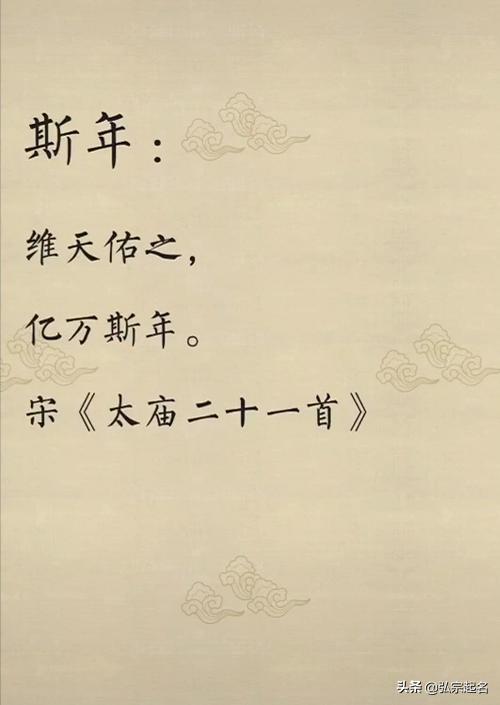 斯年：
维天佑之，
亿万斯年。
宋《太庙二十一首》
头条 @弘宗起名